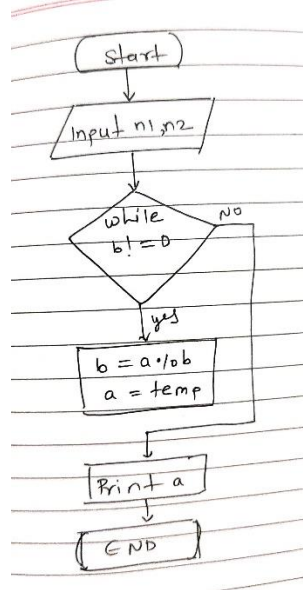 Start
Input n1,n2
while
b! = 0
NO
yes
b = a % b
a = temp
Print a
END